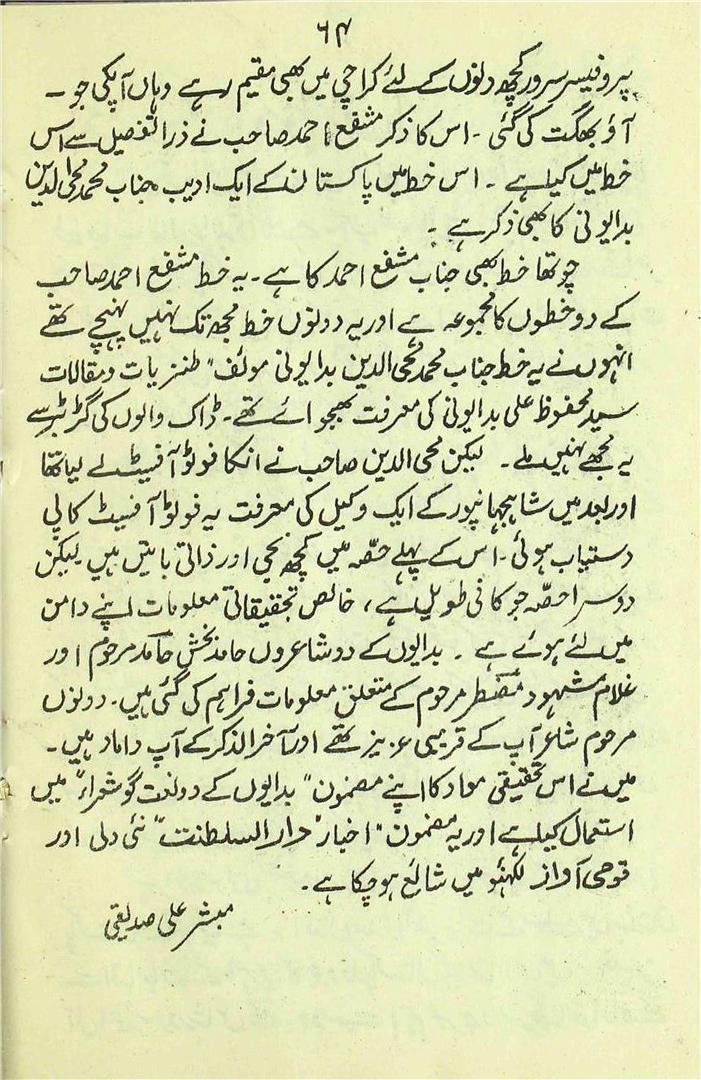 ۶۴
پروفیسر سرور کچھ دنوں کے لئے کراچی میں بھی مقیم رہے وہاں آپکی جو ۔
آؤ بھگت کی گئی ۔ اس کا ذکر مشفع احمد صاحب نے ذرا تفصیل سے اس
خط میں کیا ہے ۔ اس خط میں پاکستان کے ایک ادیب جناب محمد محی الدین
بدایونی کا بھی ذکر ہے ۔
چوتھا خط بھی جناب مشفع احمد کا ہے ۔ یہ خط مشفع احمد صاحب
کے دو خطوں کا مجموعہ ہے اور یہ دونوں خط مجھ تک نہیں پہنچے تھے
انہوں نے یہ خط جناب محمد محی الدین بدایونی مولف " طنزیات و مقالات
سید محفوظ علی بدایونی کی معرفت بھجوائے تھے ۔ ڈاک والوں کی گڑبڑ سے
یہ مجھے نہیں ملے ۔ لیکن محی الدین صاحب نے انکا فوٹو آفسیٹ لے لیا تھا
اور بعد میں شاہجہانپور کے ایک وکیل کی معرفت یہ فوٹو آفسیٹ کاپی
دستیاب ہوئی ۔ اس کے پہلے حصّہ میں کچھ نجی اور ذاتی باتیں ہیں لیکن
دوسرا حصّہ جو کافی طویل ہے ، خالص تحقیقاتی معلومات اپنے دامن
میں لئے ہوئے ہے ۔ بدایوں کے دو شاعروں حامد بخش حامد مرحوم اور
غلام مشہود مضطر مرحوم کے متعلق معلومات فراہم کی گئی ہیں ۔ دونوں
مرحوم شاعر آپ کے قریبی عزیز تھے اور آخر الذکر کے آپ داماد ہیں ۔
میں نے اس تحقیقی مواد کا اپنے مضمون " بدایوں کے دو نعت گو شعراء " میں
استعمال کیا ہے اور یہ مضمون " اخبار " دار السلطنت " نئی دلی اور
قومی آواز لکھنؤ میں شائع ہو چکا ہے ۔
مبشر علی صدیقی